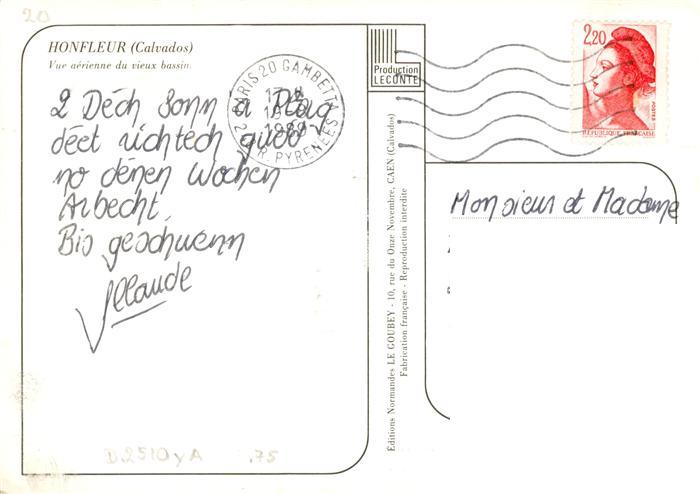 20
HONFLEUR (Calvados)
Vue aérienne du vieux bassin.
2 Déch Sonn a Plag
déet richtech gudd
no dénen Wochen
Arbecht.
Bis geschwenn
Claude
D.2510 y A .75
Production
LECONTE
Éditions Normandes LE GOUBEY - 10, rue du Onze Novembre, CAEN (Calvados)
Fabrication française - Reproduction interdite
PARIS 20 GAMBETTA
1989
R. PYRENEES
2,20
POSTES
RÉPUBLIQUE FRANÇAISE
Monsieur et Madame